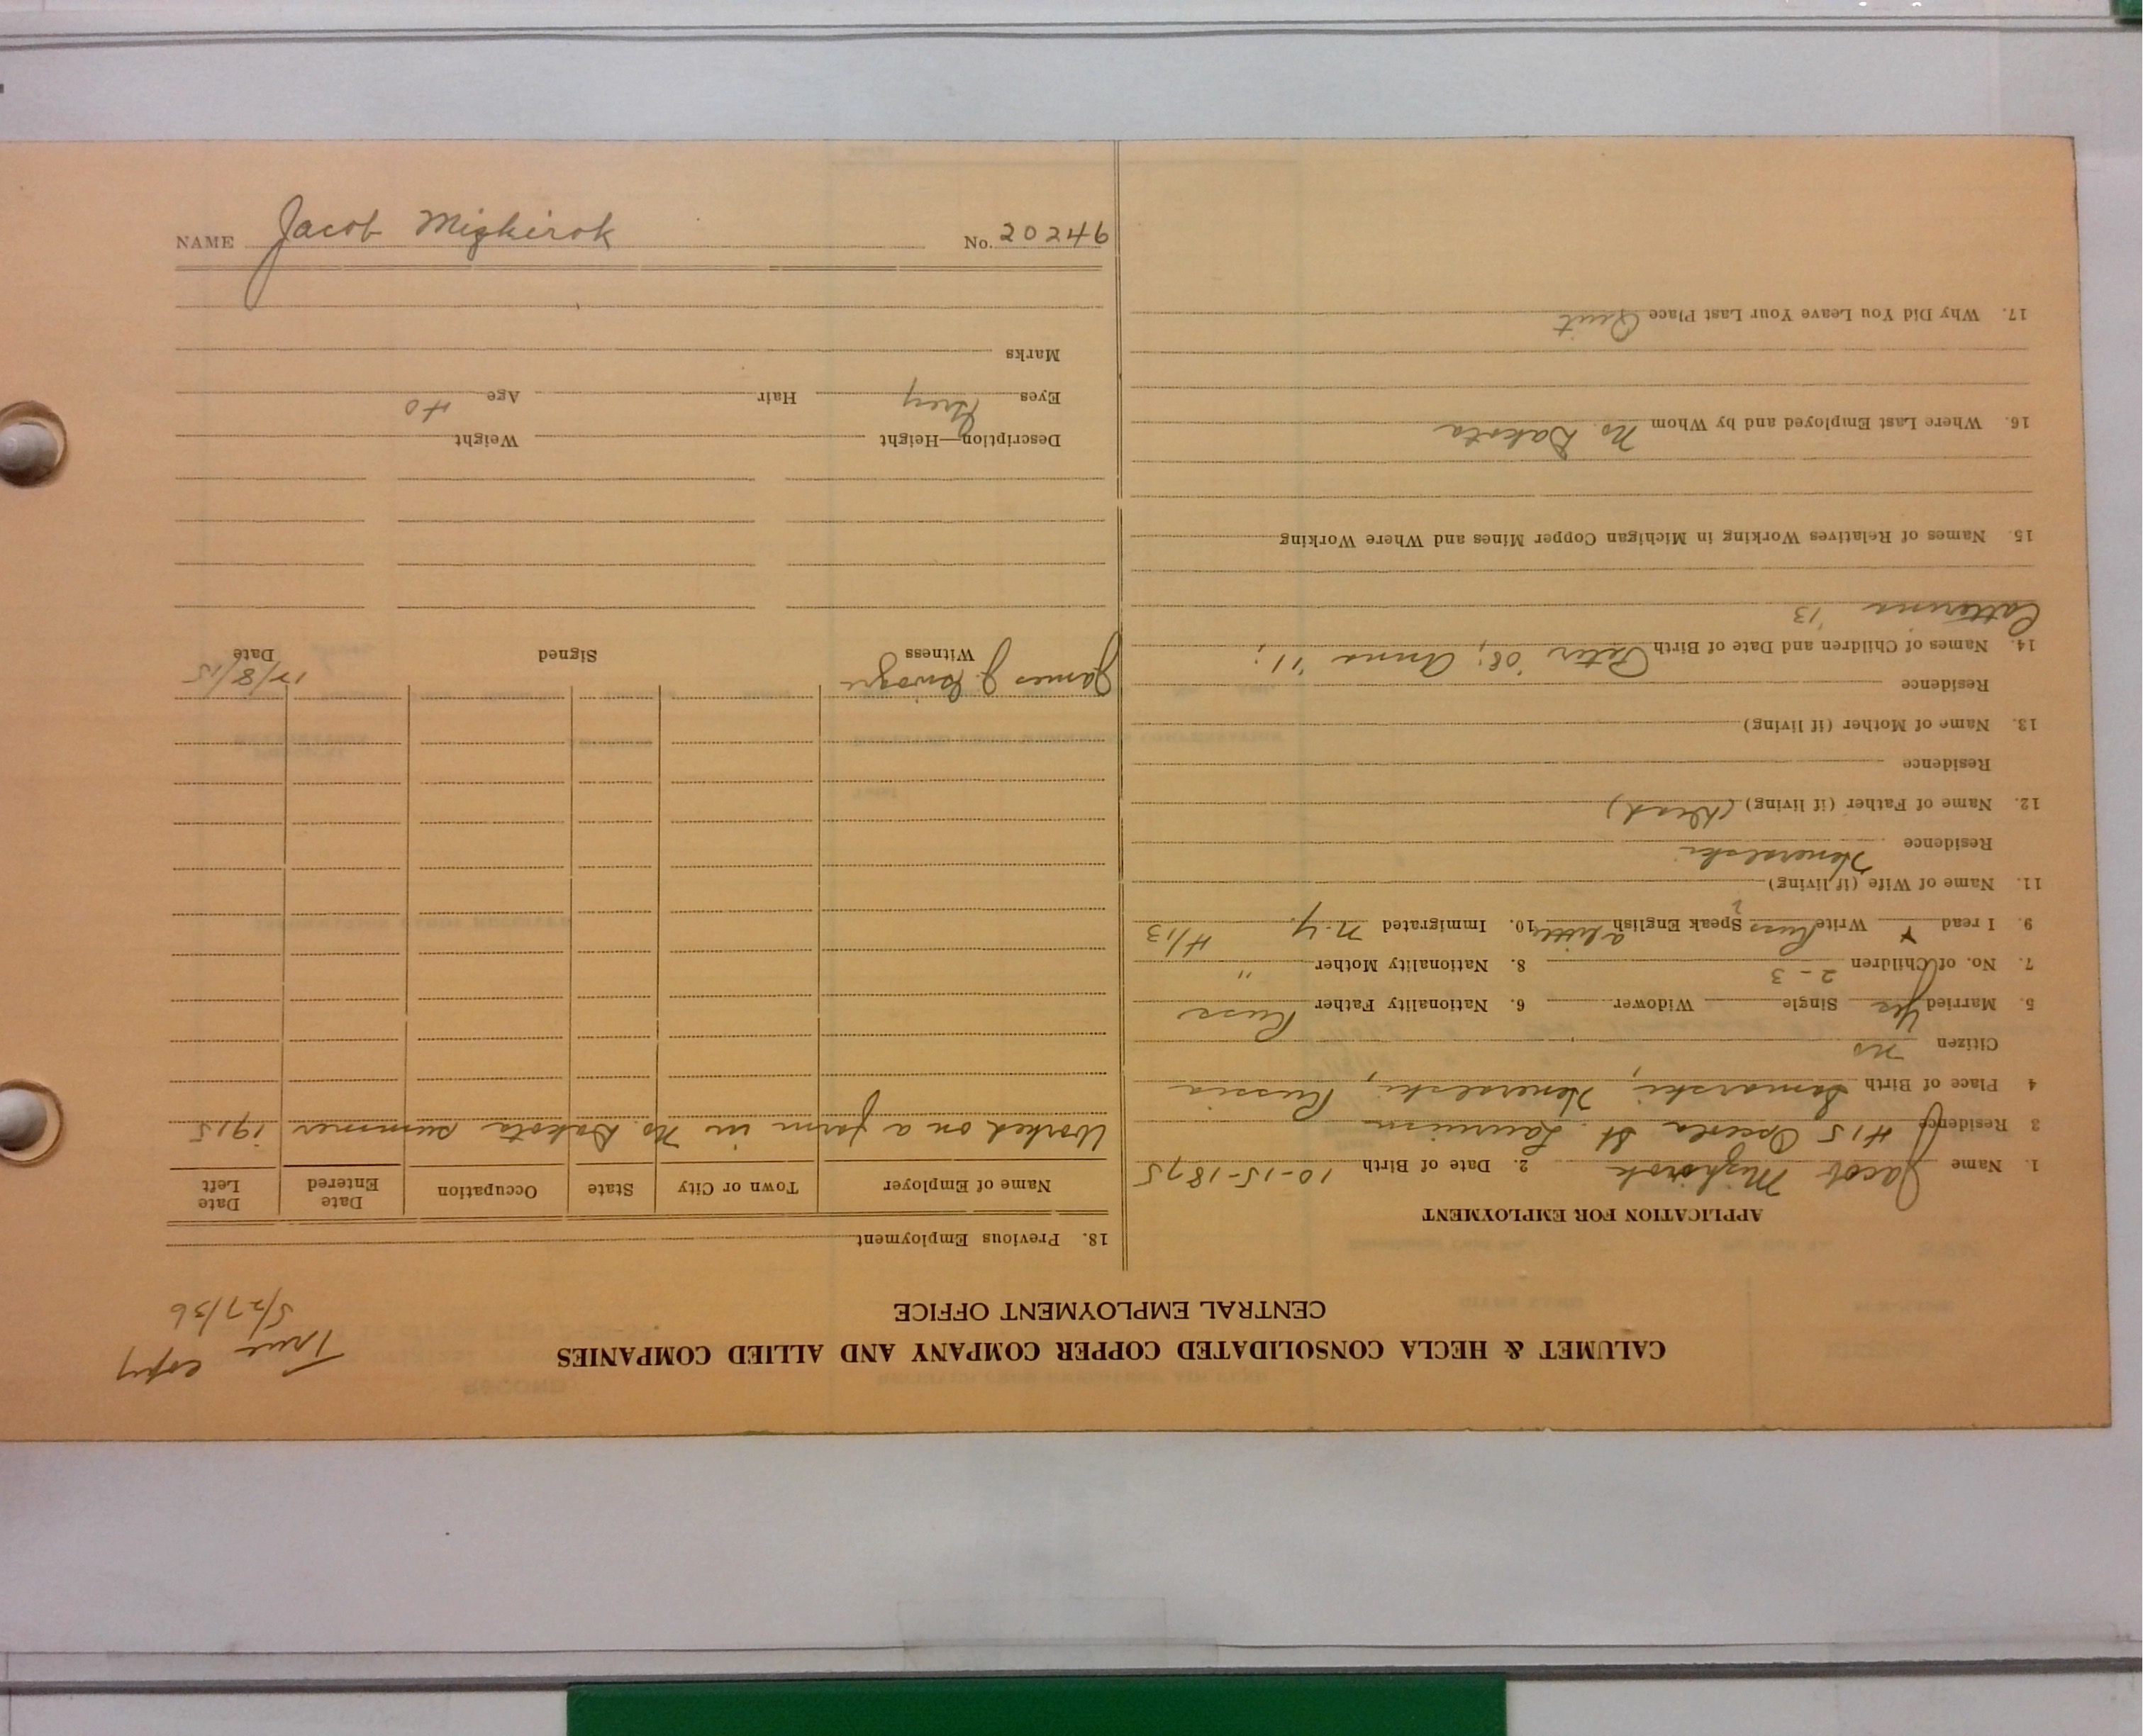 CALUMET & HECLA CONSOLIDATED COPPER COMPANY AND ALLIED COMPANIES
CENTRAL EMPLOYMENT OFFICE
True copy
5/27/36
APPLICATION FOR EMPLOYMENT
1. Name Jacob Mizkirok 2. Date of Birth 10-15-1875
3 Residence #15 Osceola St. Laurium
4 Place of Birth Samarski, Heneralski, Russia
Citizen no
5. Married Yes Single Widower 6. Nationality Father Russ
7. No. of Children 2-3 8. Nationality Mother "
9. I read Y Write Russ Speak English a little 10. Immigrated N.Y. 4/13
11. Name of Wife (if living)
Residence Heneralski
12. Name of Father (if living) (Dead)
Residence
13. Name of Mother (if living)
Residence
14. Names of Children and Date of Birth Peter '08; Anna '11;
Catterina '13
15. Names of Relatives Working in Michigan Copper Mines and Where Working
16. Where Last Employed and by Whom No. Dakota
17. Why Did You Leave Your Last Place Quit
18. Previous Employment
Name of Employer Town or City State Occupation Date Entered Date Left
Worked on a farm in No. Dakota summer 1915
James J.
12/8/15
Witness Signed Date
Description—Height Weight
Eyes Grey Hair Age 40
Marks
NAME Jacob Mizkirok No. 20246